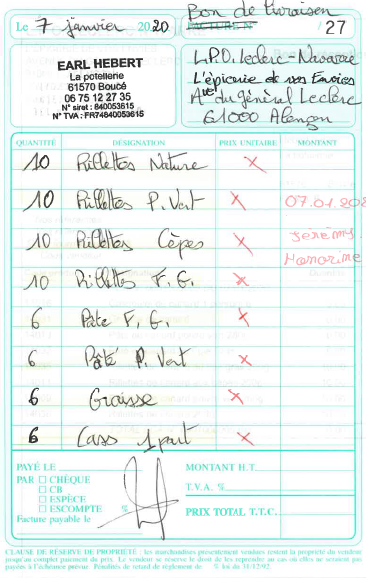 Le 7 janvier 2020
Bon de livraison
FACTURE N° /27
EARL HEBERT
La potellerie
61570 Boucé
06 75 12 27 35
N° siret : 840053615
N° TVA : FR74840053615
L.P.O. Leclerc-Navarre
L'épicerie de nos Envies
Ave du général Leclerc
61000 Alençon
QUANTITÉ DÉSIGNATION PRIX UNITAIRE MONTANT
10 Rillettes Nature X
10 Rillettes P. Vert X 07.01.202
10 Rillettes Cèpes X Jérémy.
Honorine
10 Rillettes F. G. X
6 Pâté F. G. X
6 Pâté P. Vert X
6 Graisse X
6 Cass 1 part X
PAYÉ LE
PAR □ CHÈQUE
□ CB
□ ESPÈCE
□ ESCOMPTE %
Facture payable le
MONTANT H.T.
T.V.A. %
PRIX TOTAL T.T.C.
CLAUSE DE RÉSERVE DE PROPRIÉTÉ : les marchandises présentement vendues restent la propriété du vendeur
jusqu'au complet paiement du prix. Le vendeur se réserve le droit de les reprendre au cas où elles ne seraient pas
payées à l'échéance prévue. Pénalités de retard de règlement de % loi du 31/12/92